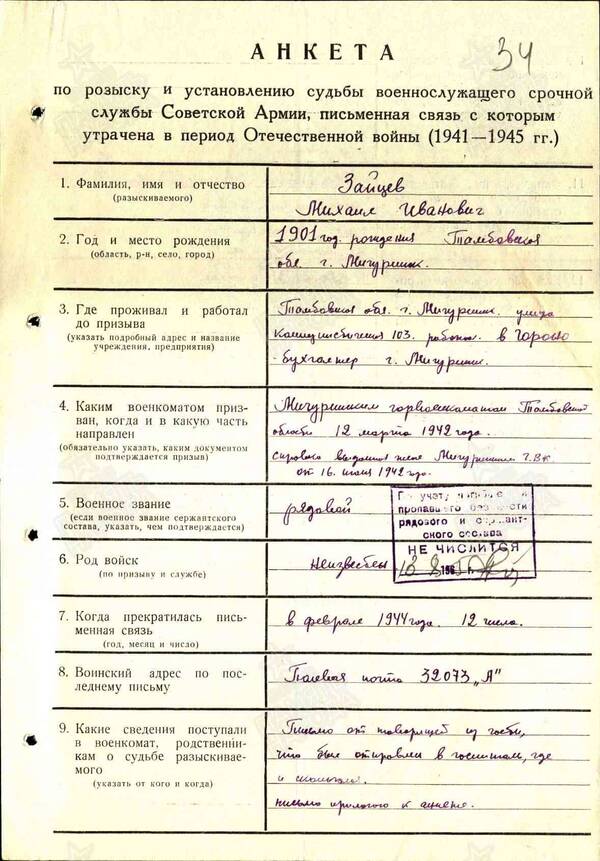 34
АНКЕТА
по розыску и установлению судьбы военнослужащего срочной
службы Советской Армии, письменная связь с которым
утрачена в период Отечественной войны (1941—1945 гг.)
1. Фамилия, имя и отчество
(разыскиваемого)
Зайцев
Михаил Иванович
2. Год и место рождения
(область, р-н, село, город)
1901 год рождения Тамбовская
обл. г. Мичуринск.
3. Где проживал и работал
до призыва
(указать подробный адрес и название
учреждения, предприятия)
Тамбовская обл. г. Мичуринск. улица
103. работал в Гороно
-бухгалтер г. Мичуринск.
4. Каким военкоматом приз-
ван, когда и в какую часть
направлен
(обязательно указать, каким документом
подтверждается призыв)
Мичуринским горвоенкоматом Тамбовской
области 12 марта 1942 года.
справка выдана Мичуринским ГВК
от 16 1942 года.
5. Военное звание
(если военное звание сержантского
состава, указать, чем подтверждается)
рядовой
По учету и
пропавшего без вести
рядового и сержант-
ского состава
НЕ ЧИСЛИТСЯ
6. Род войск
(по призыву и службе)
Неизвестен
7. Когда прекратилась пись-
менная связь
(год, месяц и число)
в феврале 1944 года. 12 числа.
8. Воинский адрес по пос-
леднему письму
Полевая почта 32073 „А"
9. Какие сведения поступали
в военкомат, родственни-
кам о судьбе разыскивае-
мого
(указать от кого и когда)
Письмо от товарищей из части,
что был отправлен в госпиталь, где
и скончался.
письмо к анкете.